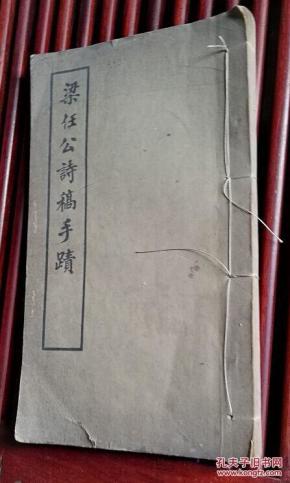 梁任公詩稿手蹟
孔夫子旧书网
www.kongfz.com